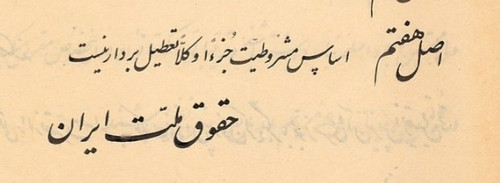 اصل هفتم اساس مشروطیّت جُزءاً و کلّاً تعطیل بردار نیست
حقوق ملّت ایران